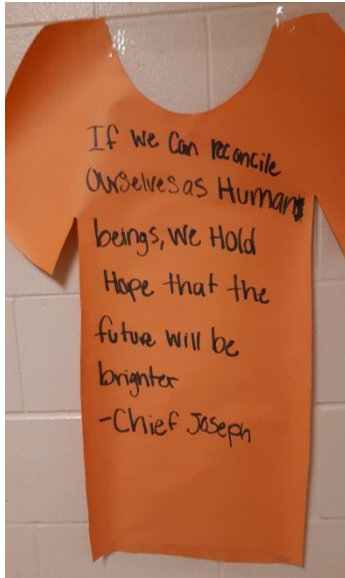 If we can reconcile
Ourselves as Human
beings, we Hold
Hope that the
future will be
brighter
-Chief Joseph